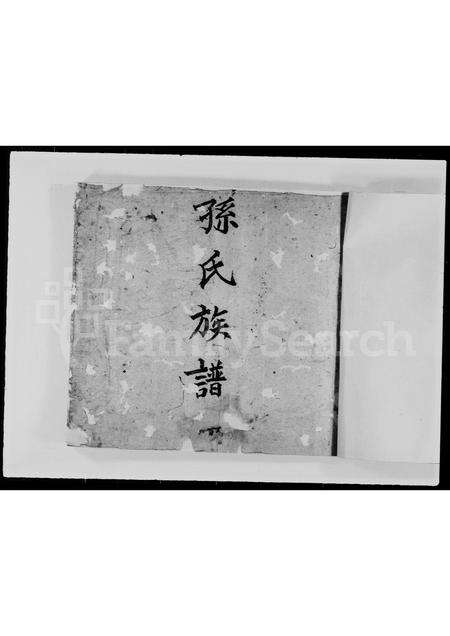 孫氏族譜
FamilySearch